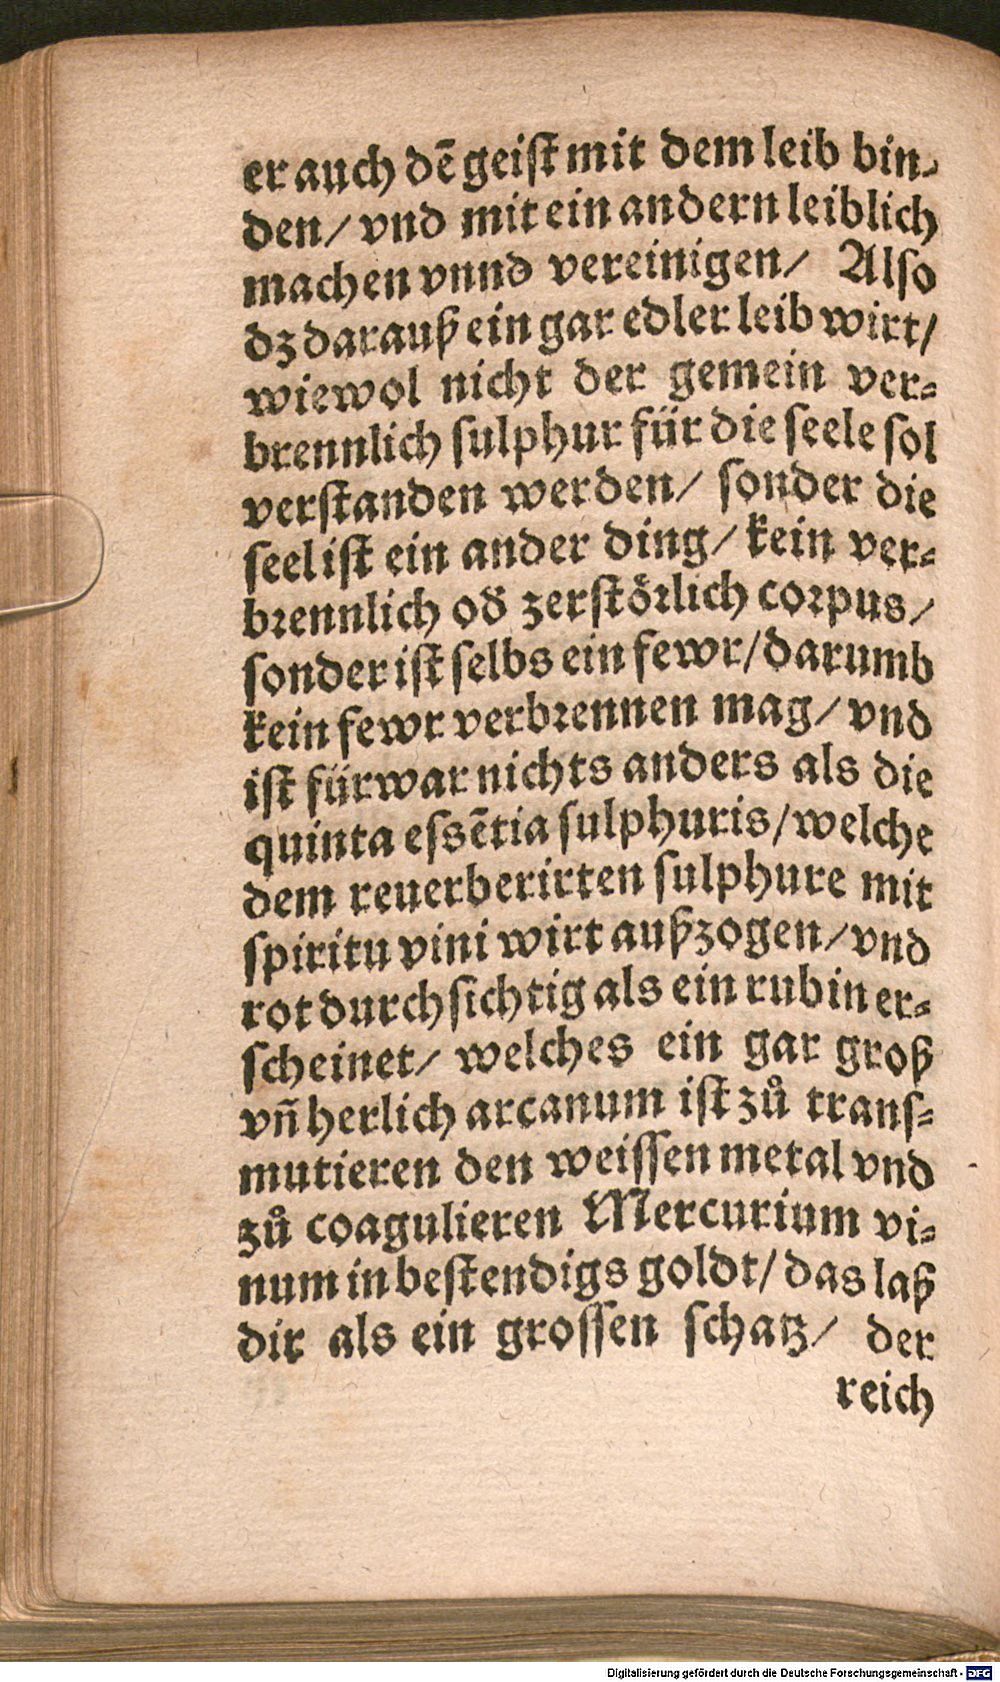 er auch dē geist mit dem leib bin-
den/ vnd mit ein andern leiblich
machen vnnd vereinigen/ Also
dz darauß ein gar edler leib wirt/
wiewol nicht der gemein ver-
brennlich sulphur für die seele sol
verstanden werden/ sonder die
seel ist ein ander ding/ kein ver-
brennlich od̄ zerstörlich corpus/
sonder ist selbs ein fewr/ darumb
kein fewr verbrennen mag/ vnd
ist fürwar nichts anders als die
quinta essētia sulphuris/ welche
dem reuerberirten sulphure mit
spiritu vini wirt außzogen/ vnd
rot durchsichtig als ein rubin er-
scheinet/ welches ein gar groß
vñ herlich arcanum ist zů trans-
mutieren den weissen metal vnd
zů coagulieren Mercurium vi-
num in bestendigs goldt/ das laß
dir als ein grossen schatz/ der
reich
Digitalisierung gefördert durch die Deutsche Forschungsgemeinschaft - DFG